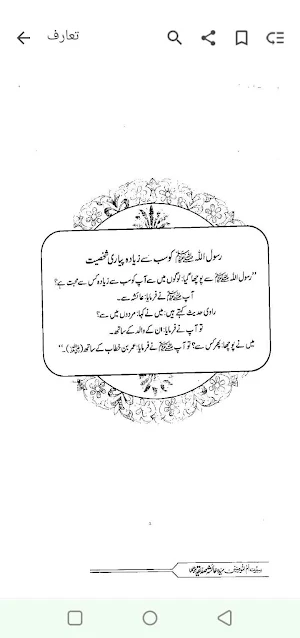 تعارف
رسول اللہ ﷺ کو سب سے زیادہ پیاری شخصیت
”رسول اللہ ﷺ سے پوچھا گیا: لوگوں میں سے آپ کو سب سے زیادہ کس سے محبت ہے؟
آپ ﷺ نے فرمایا: عائشہ سے۔
راوی حدیث کہتے ہیں: میں نے کہا: مردوں میں سے؟
تو آپ نے فرمایا: ان کے والد کے ساتھ۔
میں نے پوچھا: پھر کس سے؟ تو آپ ﷺ نے فرمایا: عمر بن خطاب کے ساتھ (رضی اللہ عنہم)۔“